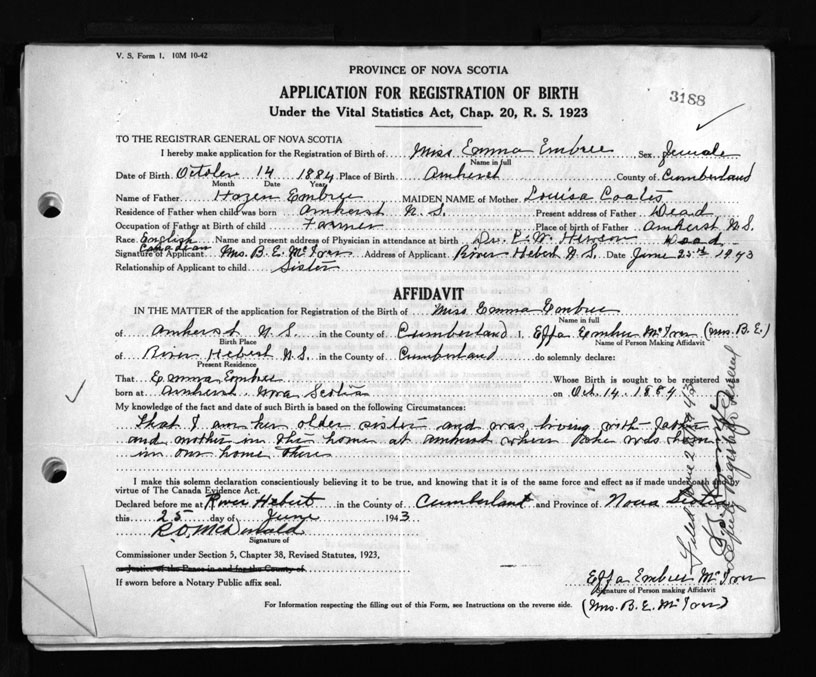 V. S. Form 1. 10M 10-42
PROVINCE OF NOVA SCOTIA
APPLICATION FOR REGISTRATION OF BIRTH
3188
Under the Vital Statistics Act, Chap. 20, R. S. 1923
TO THE REGISTRAR GENERAL OF NOVA SCOTIA
I hereby make application for the Registration of Birth of Miss Emma Embree Sex female
Name in full
Date of Birth October 14 1884 Place of Birth Amherst County of Cumberland
Month Date Year
Name of Father Hazen Embree MAIDEN NAME of Mother Louisa Coates
Residence of Father when child was born Amherst N. S. Present address of Father Dead
Occupation of Father at Birth of child Farmer Place of birth of Father Amherst N. S.
Race English Canadian Name and present address of Physician in attendance at birth Dr. Hewson Dead
Signature of Applicant Mrs. B. E. McIver Address of Applicant River Hebert N. S. Date June 25th 1943
Relationship of Applicant to child Sister
AFFIDAVIT
IN THE MATTER of the application for Registration of the Birth of Miss Emma Embree
Name in full
of Amherst N. S. in the County of Cumberland I, Effa Embree McIver (Mrs. B. E.)
Birth Place Name of Person Making Affidavit
of River Hebert N. S. in the County of Cumberland do solemnly declare:
Present Residence
That Emma Embree Whose Birth is sought to be registered was
born at Amherst Nova Scotia on Oct. 14. 1884
My knowledge of the fact and date of such Birth is based on the following Circumstances:
That I am her older sister and was living with father
and mother in the home at Amherst where was born
in our home there
I make this solemn declaration conscientiously believing it to be true, and knowing that it is of the same force and effect as if made under oath and by
virtue of The Canada Evidence Act.
Declared before me at River Hebert in the County of Cumberland and Province of Nova Scotia
this 25 day of June 1943
R. O. McDonald
Signature of
Commissioner under Section 5, Chapter 38, Revised Statutes, 1923,
a Justice of the Peace in and for the County of
If sworn before a Notary Public affix seal.
Effa Embree McIver
Signature of Person making Affidavit
(Mrs. B. E. McIver)
For Information respecting the filling out of this Form, see Instructions on the reverse side.
Filed June 28 1943
Deputy Registrar General